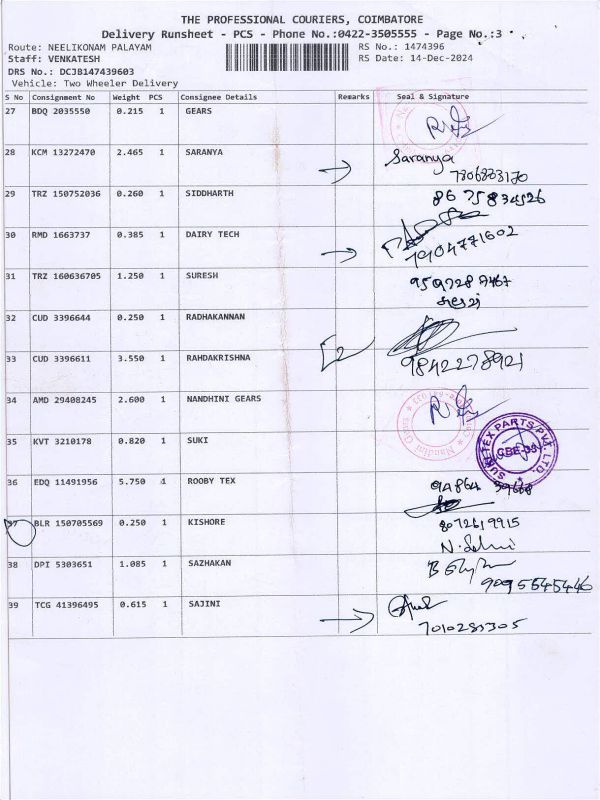 THE PROFESSIONAL COURIERS, COIMBATORE
Delivery Runsheet - PCS - Phone No.:0422-3505555 - Page No.:3
Route: NEELIKONAM PALAYAM RS No.: 1474396
Staff: VENKATESH RS Date: 14-Dec-2024
DRS No.: DCJB147439603
Vehicle: Two Wheeler Delivery
S No Consignment No Weight PCS Consignee Details Remarks Seal & Signature
27 BDQ 2035550 0.215 1 GEARS
28 KCM 13272470 2.465 1 SARANYA Saranya
29 TRZ 150752036 0.260 1 SIDDHARTH 86 75834526
30 RMD 1663737 0.385 1 DAIRY TECH 7904771602
31 TRZ 160636705 1.250 1 SURESH
32 CUD 3396644 0.250 1 RADHAKANNAN
33 CUD 3396611 3.550 1 RAHDAKRISHNA 9842278921
34 AMD 29408245 2.600 1 NANDHINI GEARS
35 KVT 3210178 0.820 1 SUKI CBE-35
36 EDQ 11491956 5.750 1 ROOBY TEX
37 BLR 150705569 0.250 1 KISHORE 8072619915
38 DPI 5303651 1.085 1 SAZHAKAN
9095545446
39 TCG 41396495 0.615 1 SAJINI
7010283305